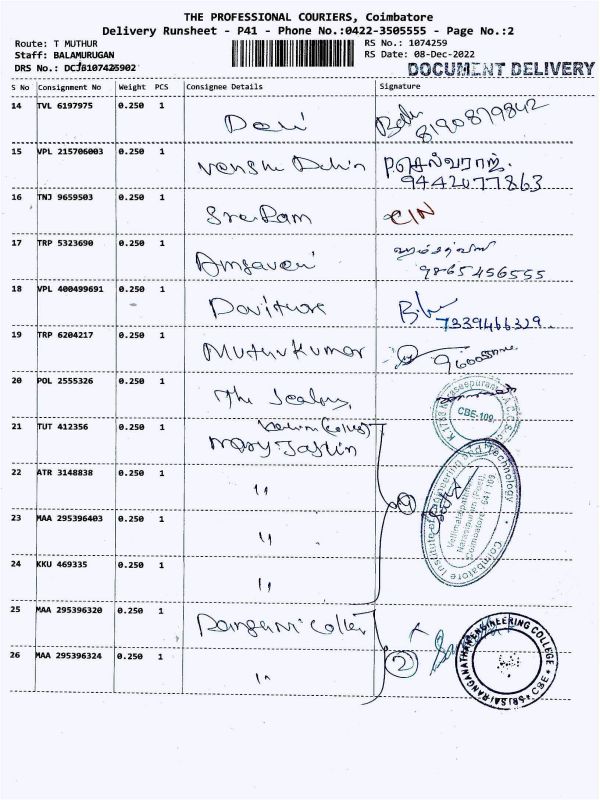 THE PROFESSIONAL COURIERS, Coimbatore
Delivery Runsheet - P41 - Phone No.:0422-3505555 - Page No.:2
Route: T MUTHUR
RS No.: 1074259
Staff: BALAMURUGAN
RS Date: 08-Dec-2022
DRS No.:
DOCUMENT DELIVERY
S No Consignment No Weight PCS Consignee Details Signature
14 TVL 6197975 0.250 1 Devi 8190879842
15 VPL 215706003 0.250 1 P.செல்வராஜ்.
9442077863
16 TNJ 9659503 0.250 1 SreeRam
17 TRP 5323690 0.250 1 Amsaveni
9865456555
18 VPL 400499691 0.250 1
7339466329
19 TRP 6204217 0.250 1 Muthukumar
20 POL 2555326 0.250 1 The
CBE-109
21 TUT 412356 0.250 1
Mary Jaslin
22 ATR 3148838 0.250 1 "
23 MAA 295396403 0.250 1 "
24 KKU 469335 0.250 1 "
Coimbatore Institute of Engineering and Technology
Coimbatore - 641 109
25 MAA 295396320 0.250 1
26 MAA 295396324 0.250 1 " 2
SRI SAI RANGANATHAN ENGINEERING COLLEGE
CBE